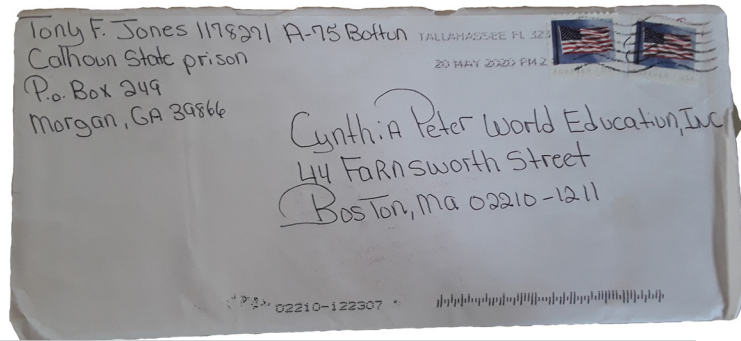 Tony F. Jones 1178271 A-75 Bottun
Calhoun State prison
P.o. Box 249
Morgan, GA 39866
TALLAHASSEE FL 323
20 MAY 2020 PM 2
Cynthia Peter World Education, Inc
44 Farnsworth Street
Boston, Ma 02210-1211
02210-122307